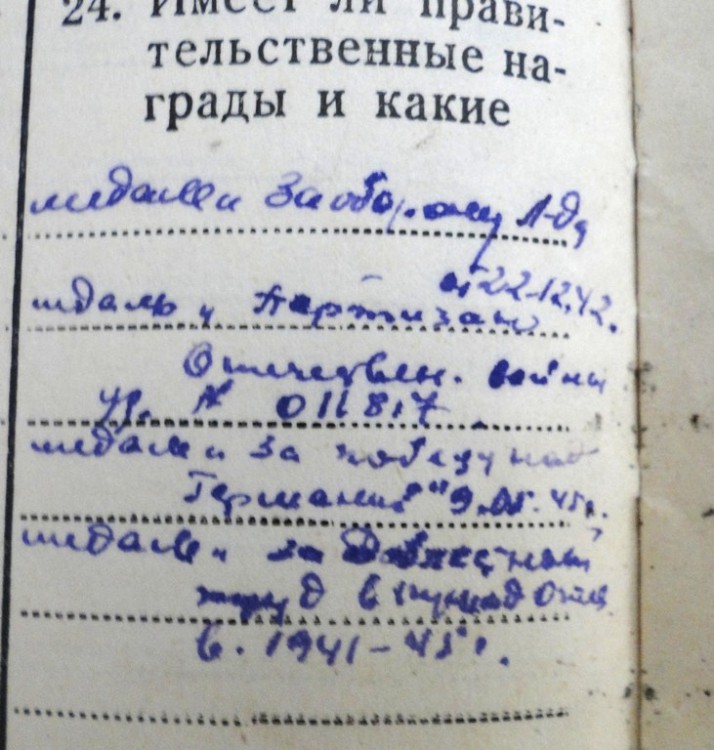 24. Имеет ли прави-
тельственные на-
грады и какие
медаль „ За оборону Л-да
от 22-12.42.
медаль „ Партизан
Отечествен. войны
уд. № 011817
медаль „ За победу над
Германией" 9.05.45г.
медаль „ за Доблестный
труд в период Отеч
в. 1941-45г.